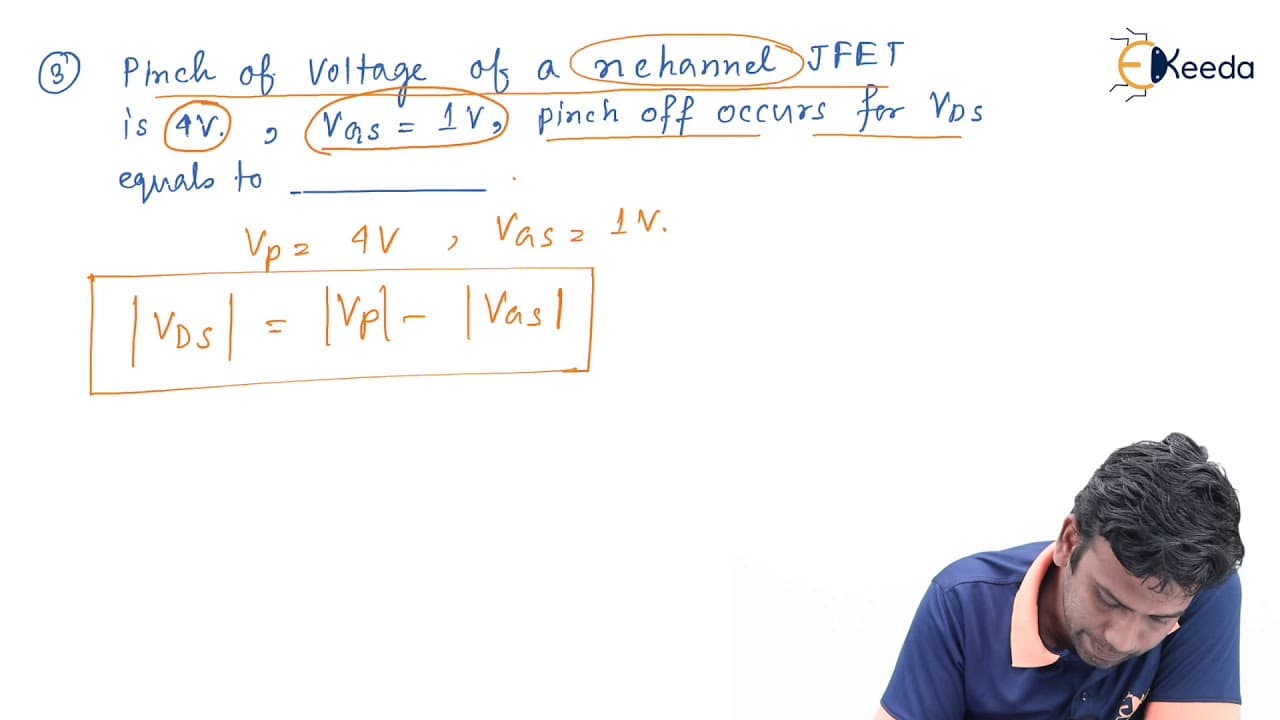 3) Pinch of Voltage of a nchannel JFET
is 4V. , VGS = 1V, pinch off occurs for VDS
equals to ________ .
Vp = 4V , VGS = 1V.
|VDS| = |Vp| - |VGS|
EKeeda